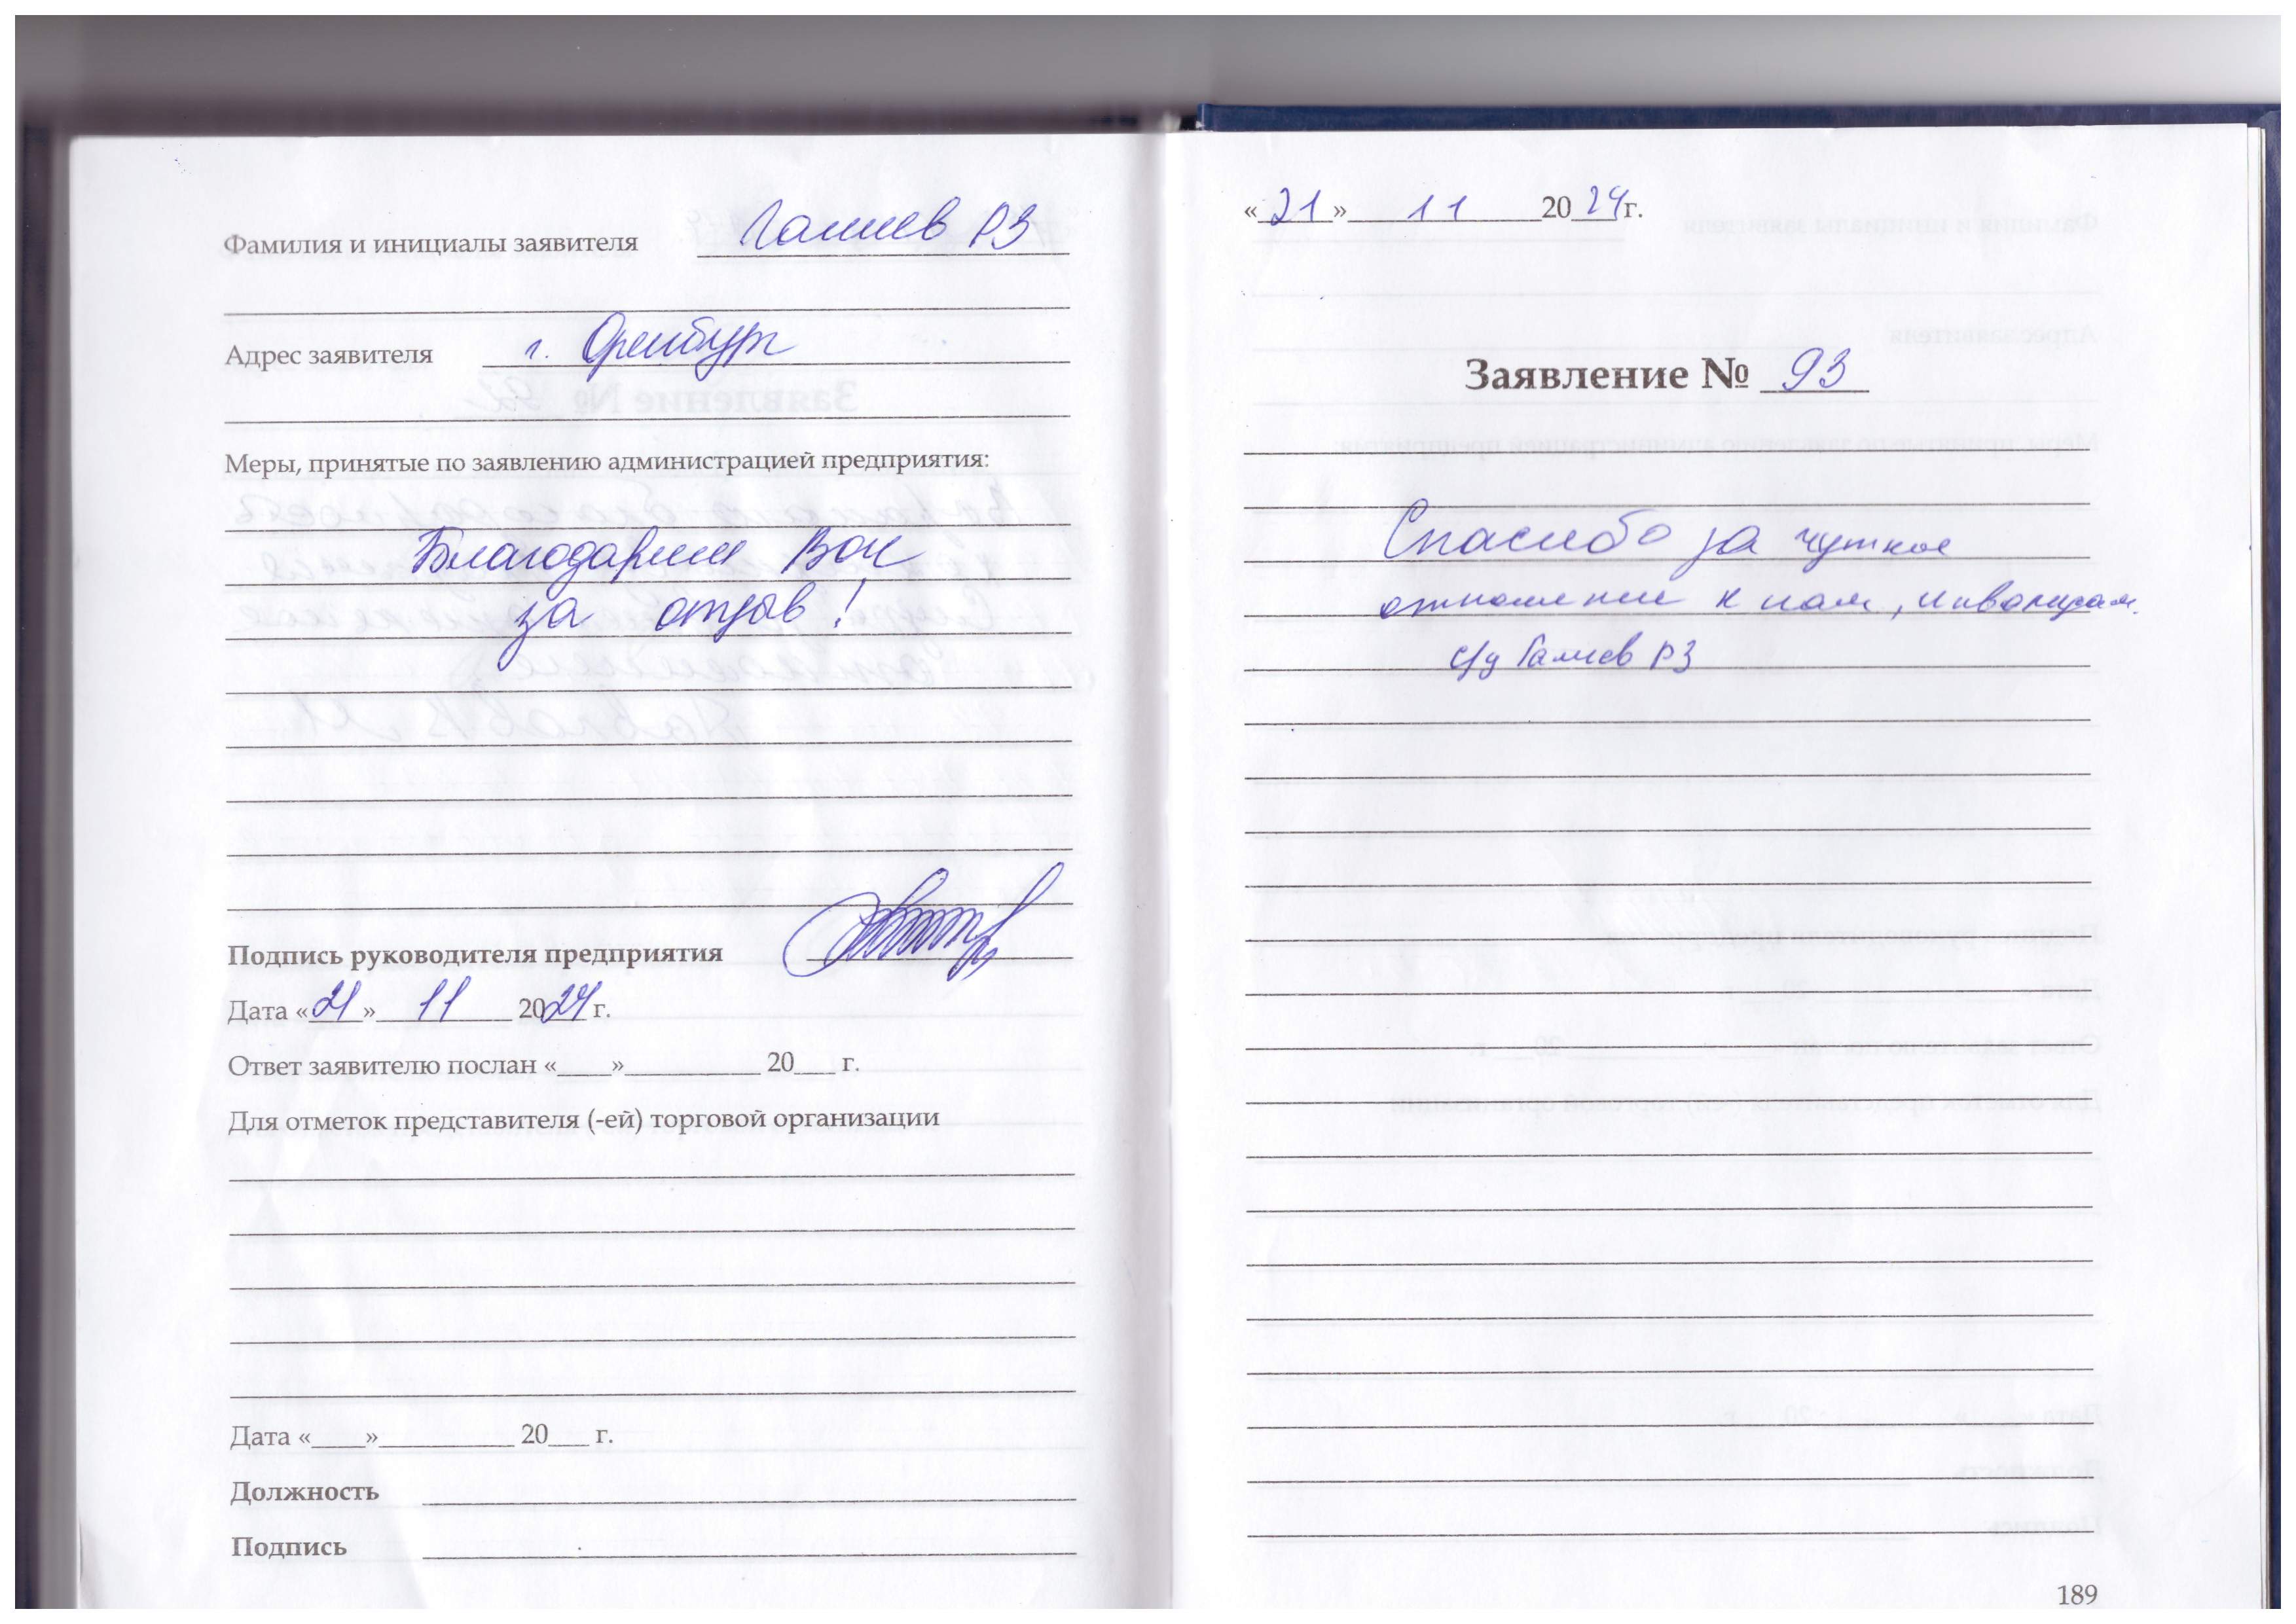 Фамилия и инициалы заявителя Галиев РЗ
Адрес заявителя г. Оренбург
Меры, принятые по заявлению администрацией предприятия:
Благодарим Вас
за отзыв!
Подпись руководителя предприятия
Дата «21» 11 2024 г.
Ответ заявителю послан «____»__________ 20___ г.
Для отметок представителя (-ей) торговой организации
Дата «____»__________ 20___ г.
Должность
Подпись
«21» 11 2024 г.
Заявление № 93
Спасибо за чуткое
отношение к нам, инвалидам.
Галиев РЗ
189